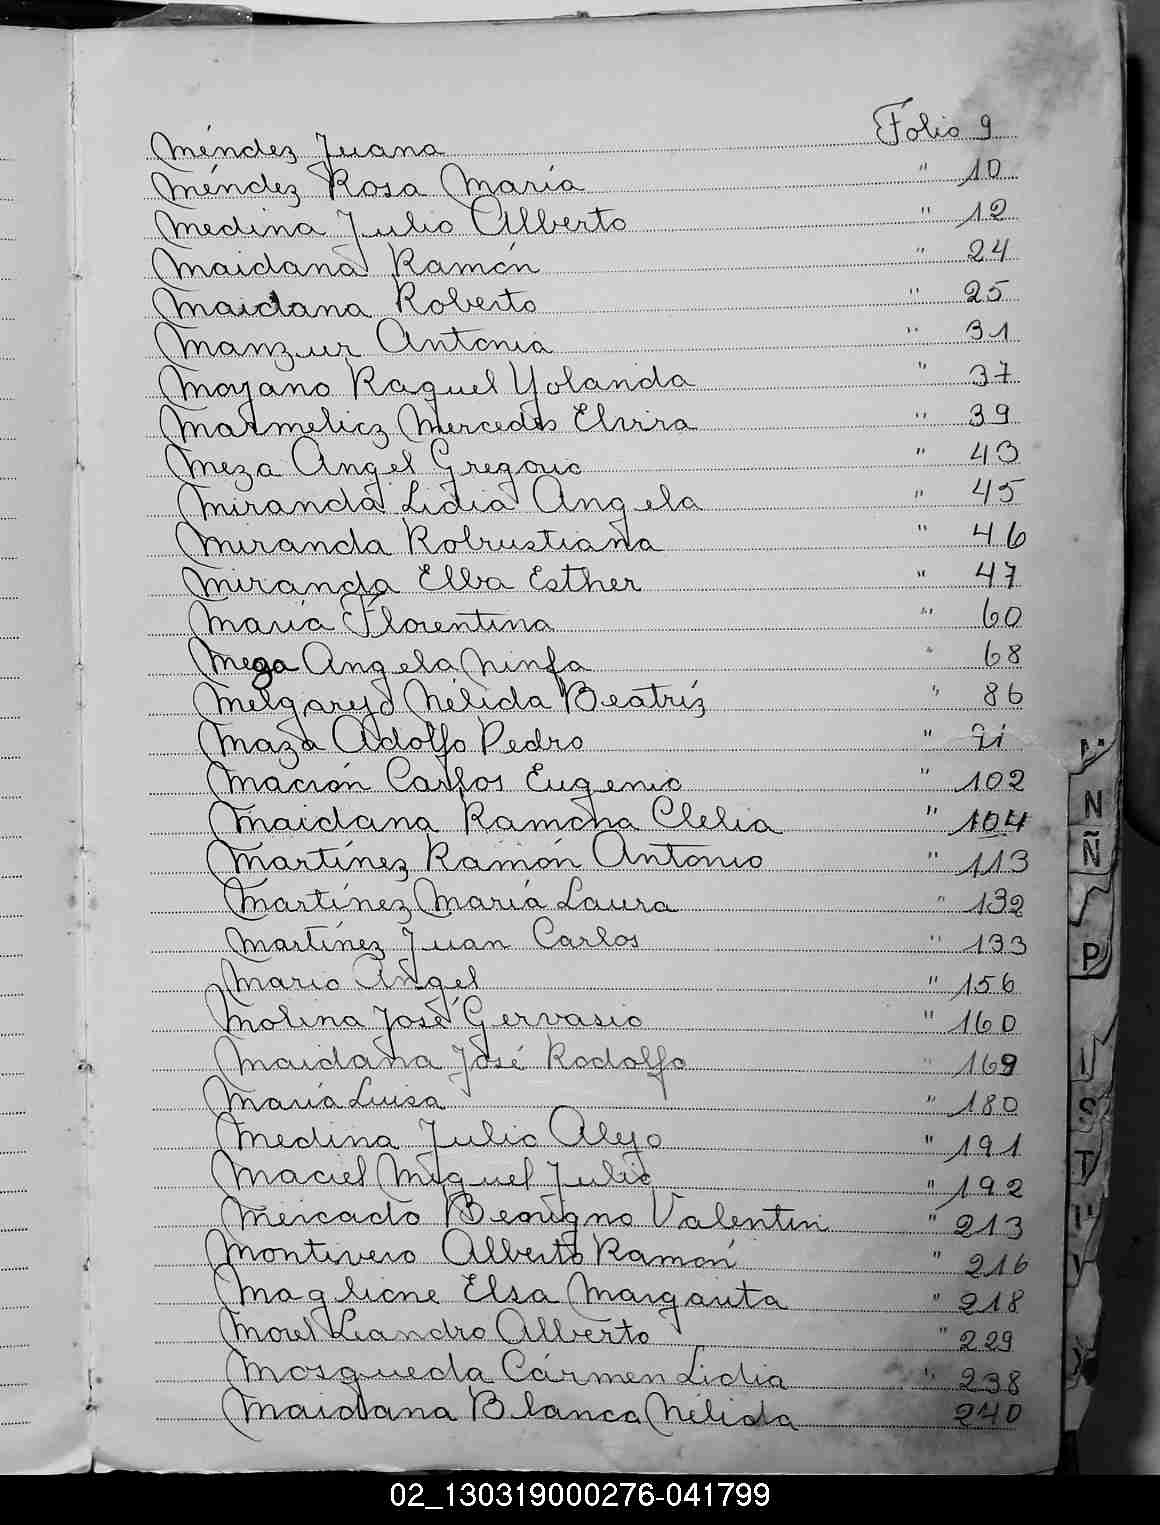 Méndez Juana Folio 9
Méndez Rosa María " 10
Medina Julio Alberto " 12
Maidana Ramón " 24
Maidana Roberto " 25
Manzur Antonia " 31
Moyano Raquel Yolanda " 37
Marmelicz Mercedes Elvira " 39
Meza Angel Gregorio " 43
Miranda Lidia Angela " 45
Miranda Robustiana " 46
Miranda Elba Esther " 47
María Florentina " 60
Meza Angela Ninfa " 68
Melgarejo Nélida Beatríz " 86
Maza Adolfo Pedro "
Mación Carlos Eugenio " 102
Maidana Ramona Clelia " 104
Martínez Ramón Antonio " 113
Martínez María Laura " 132
Martínez Juan Carlos " 133
Mario Angel " 156
Molina José Gervasio " 160
Maidana José Rodolfo " 169
María Luisa " 180
Medina Julio Alejo " 191
Maciel Miguel Julio " 192
Mercado Benigno Valentin " 213
Montivero Alberto Ramón " 216
Maglione Elsa Margarita " 218
Morel Leandro Alberto " 229
Mosqueda Cármen Lidia " 238
Maidana Blanca Nélida 240
N
Ñ
P
S
T
02_130319000276-041799